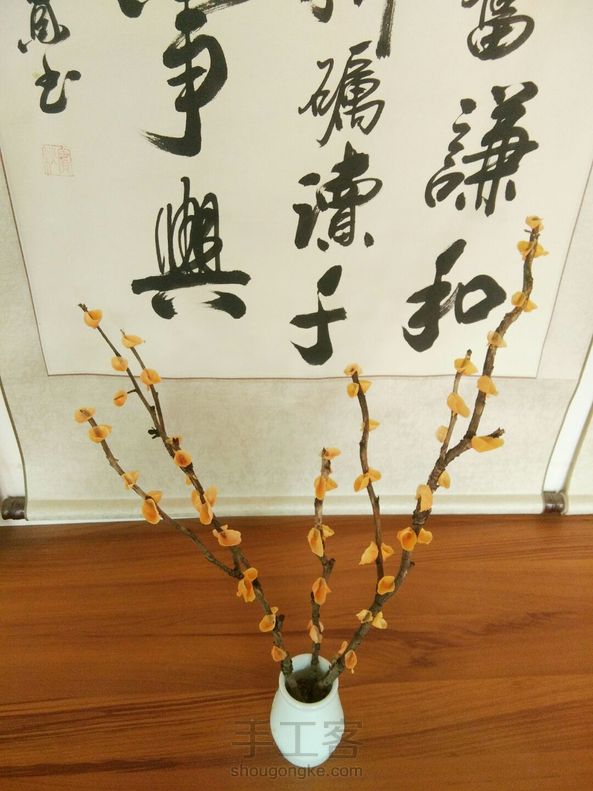 謙和
礪讀千
事興
书
手工客
shougongke.com